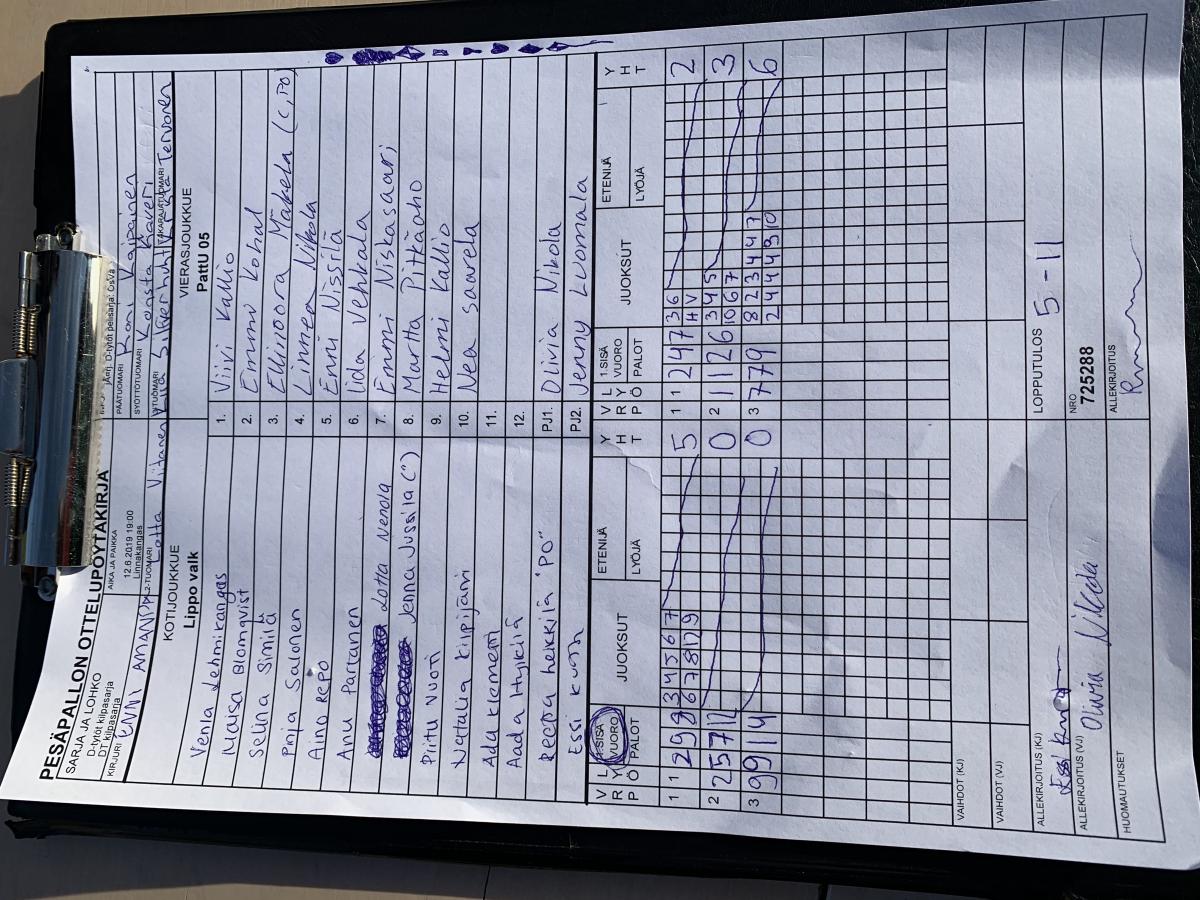 PESÄPALLON OTTELUPÖYTÄKIRJA
SARJA JA LOHKO
D-tytöt kilpasarja
DT kilpasarja
AIKA JA PAIKKA
12.6.2019 19:00
Linnakangas
PÄÄTUOMARI Roni Kaipainen
SYÖTTÖTUOMARI Konsta Kaveri
KIRJURI ENNI AMANDA
2-TUOMARI Lotta Viitanen
TAKARAJATUOMARI Tervonen
KOTIJOUKKUE
Lippo valk
VIERASJOUKKUE
PattU 05
Venla Lehmikangas 1. Viivi Kallio
Maisa Blomqvist 2. Emmi Kohal
Selina Similä 3. Ellinoora Mäkelä (C, PO)
Pinja Salonen 4. Linnea Nikola
Aino Repo 5. Enni Nissilä
Anu Partanen 6. Iida Vehkala
Lotta Nenola 7. Emmi Niskasaari
Jenna Jussila (") 8. Martta Pitkäaho
Piitu Nuon 9. Helmi Kallio
Nattalia Kilpijärvi 10. Nea Saarela
Ada Klemetti 11.
Aada Hylkilä 12.
Reetta heikkilä "PO" PJ1. Olivia Nikola
Essi PJ2. Jenny Luomala
V R P L Y Ö 1.SISÄ VUORO PALOT JUOKSUT ETENIJÄ LYÖJÄ Y H T V R P L Y Ö 1.SISÄ VUORO PALOT JUOKSUT ETENIJÄ LYÖJÄ Y H T
1 1 2 9 8 3 4 5 6 7 5 1 1 2 4 7 3 6 2
6 7 8 12 9 H V
2 2 5 7 11 0 2 1 11 2 6 3 4 5 3
10 6 7
3 9 9 1 4 0 3 7 7 9 8 2 3 4 4 7 6
2 4 4 9 3 10
VAIHDOT (KJ)
VAIHDOT (VJ)
ALLEKIRJOITUS (KJ)
LOPPUTULOS 5-11
ALLEKIRJOITUS (VJ) Olivia Nikola
NRO
725288
HUOMAUTUKSET
ALLEKIRJOITUS